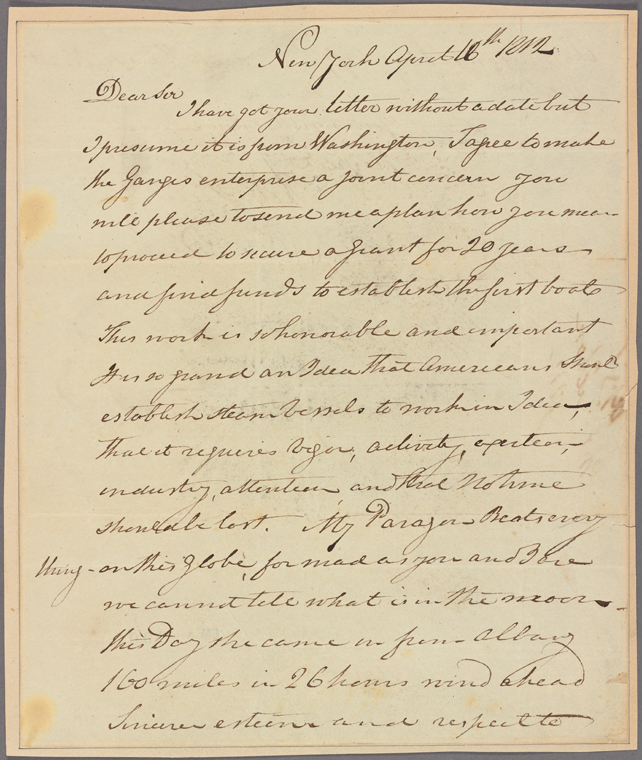 New York April 16th 1812
Dear Sir
I have got your letter without a date but
I presume it is from Washington, I agree to make
the Ganges enterprise a joint concern you
will please to send me a plan how you mean
to proceed to secure a grant for 20 years
and find funds to establish the first boat
This work is so honorable and important
It is so grand an Idea that Americans should
establish steam vessels to work in India,
that it requires vigor, activity, exertion,
industry, attention and that no time
should be lost. My Paragon Beats every
thing - on this Globe, for mad as you and I are
we cannot tell what is in the moon -
this Day she came in from Albany
160 miles in 26 hours wind ahead
Sincere esteem and respect to